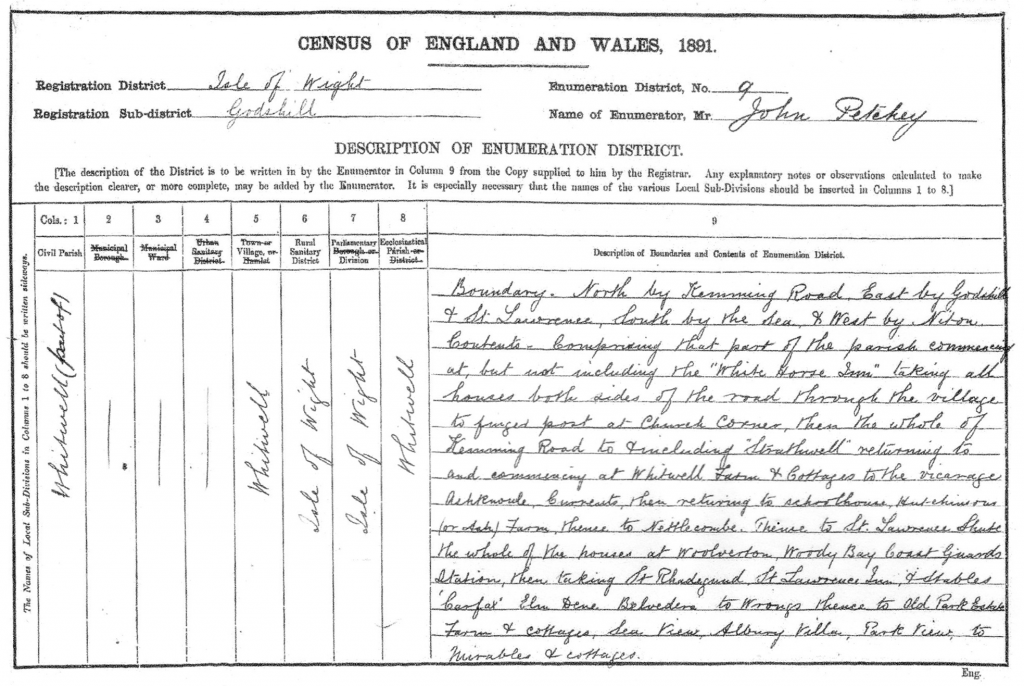 CENSUS OF ENGLAND AND WALES, 1891.
Registration District Isle of Wight
Enumeration District, No. 9
Registration Sub-district Godshill
Name of Enumerator, Mr. John Petchey
DESCRIPTION OF ENUMERATION DISTRICT.
[The description of the District is to be written in by the Enumerator in Column 9 from the Copy supplied to him by the Registrar. Any explanatory notes or observations calculated to make
the description clearer, or more complete, may be added by the Enumerator. It is especially necessary that the names of the various Local Sub-Divisions should be inserted in Columns 1 to 8.]
The Names of Local Sub-Divisions in Columns 1 to 8 should be written sideways.
Cols.: 1
2
3
4
5
6
7
8
9
Civil Parish
Municipal Borough.
Municipal Ward
Urban Sanitary District.
Town or Village, or Hamlet
Rural Sanitary District
Parliamentary Borough or Division
Ecclesiastical Parish or District.
Description of Boundaries and Contents of Enumeration District.
Whitwell (part of)
Whitwell
Isle of Wight
Isle of Wight
Whitwell
Boundary - North by Kemming Road, East by Godshill
& St. Lawrence, South by the Sea, & West by Niton.
Contents - Comprising that part of the parish commencing
at, but not including the "White Horse Inn" taking all
houses both sides of the road through the village
to finger post at Church Corner, then the whole of
Kemming Road to & including "Strathwell" returning to
and commencing at Whitwell Farm & Cottages to the vicarage
Ashknowle, Currents, then returning to schoolhouse, Hutchinsons
(or Ash) Farm, thence to Nettlecombe. Thence to St. Lawrence Shute
the whole of the houses at Woolverton, Woody Bay Coast Guards
Station, then taking St Rhadegund, St Lawrence Inn, & Stables
'Carfax' Elm Dene Belvedere to Wrongs thence to Old Park Estate
Farm & cottages, Sea View, Albury Villa, Park View, to
Mirables & cottages.
Eng.